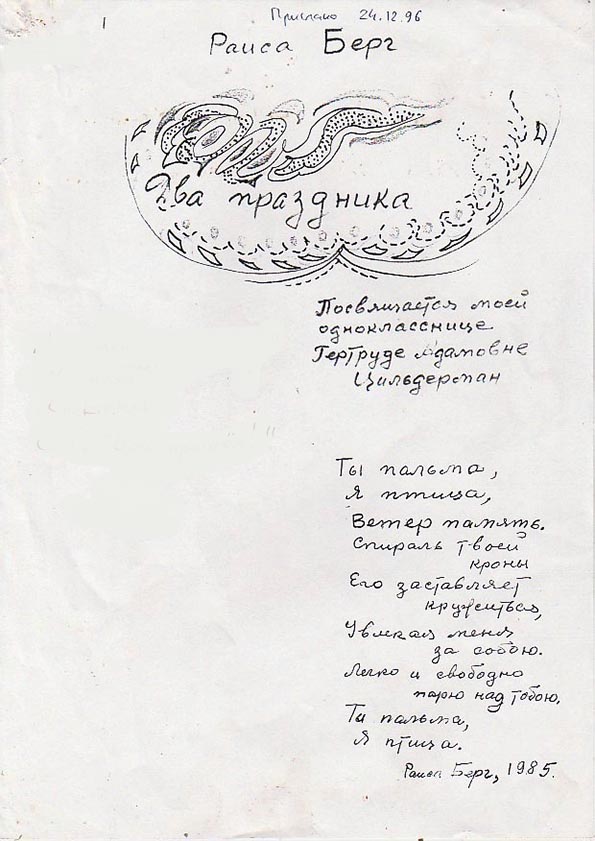 1
Прислано 24.12.96
Раиса Берг
Два праздника
Посвящается моей
однокласснице
Гертруде Адамовне
Цильдерман
Ты пальма,
Я птица,
Ветер память.
Спираль твоей
кроны
Его заставляет
кружиться,
Увлекая меня
за собою.
Легко и свободно
парю над тобою.
Ты пальма,
Я птица.
Раиса Берг, 1985.